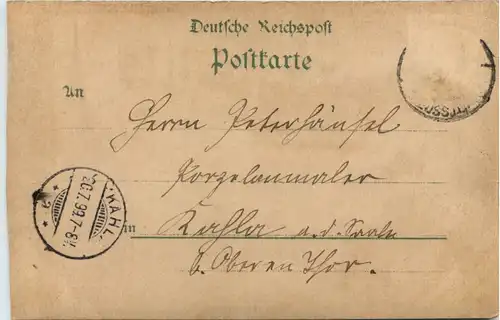 Deutsche Reichspost
Postkarte
An
Herrn Peterhänsel
Porzelanmaler
in Kahla a. d. Saale
b. Oberen Thor.
KAHLA
20.7.99.7-8V.
* a *